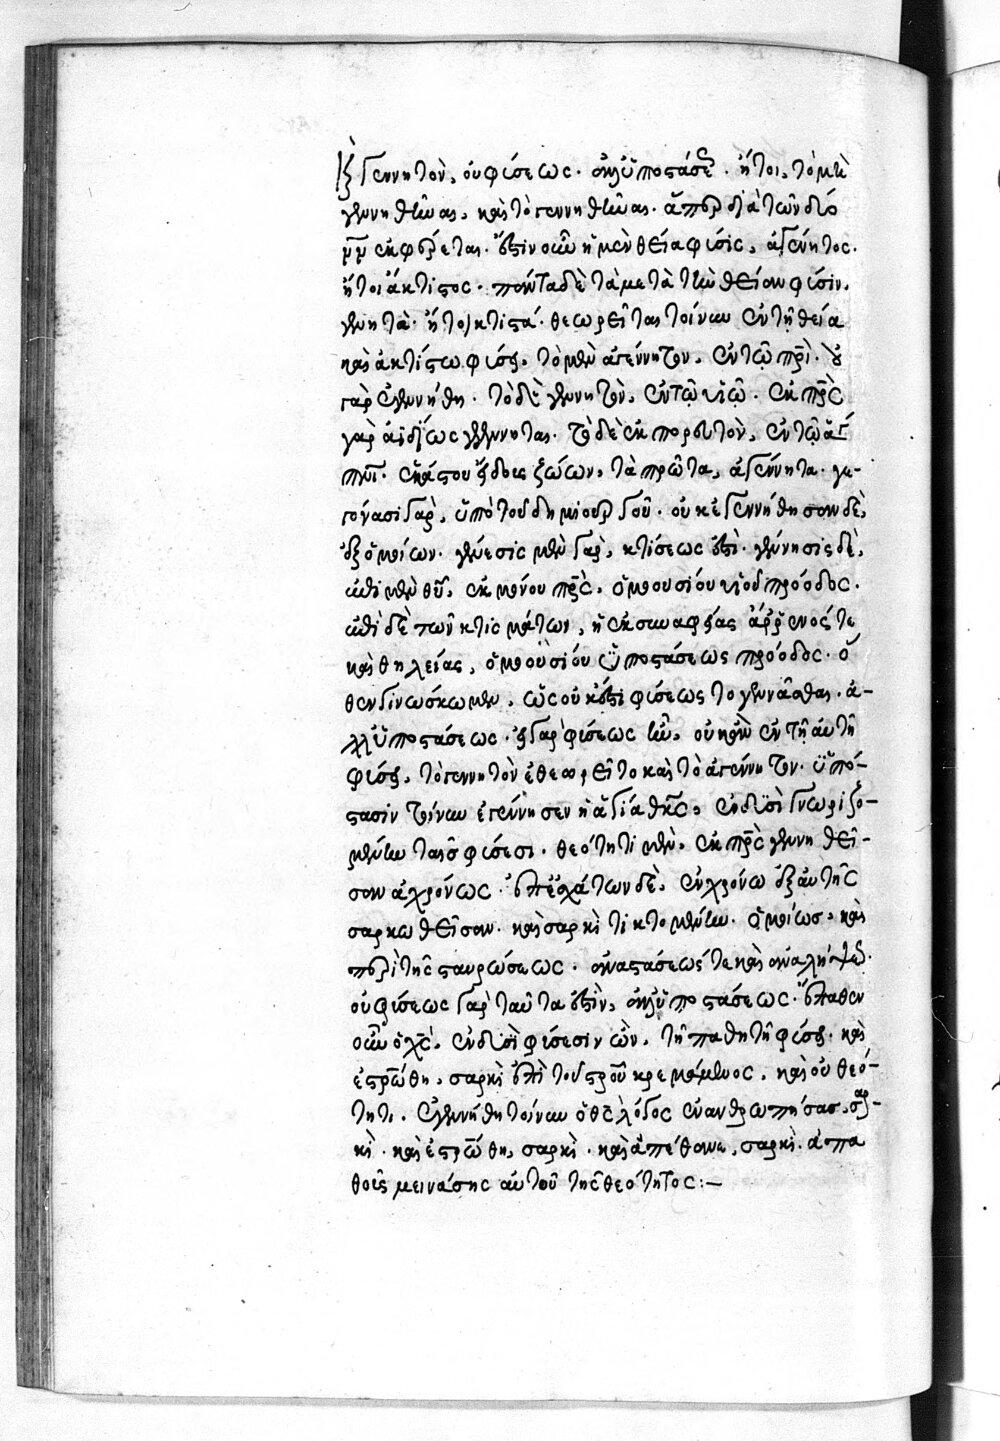 γεννητὸν, οὐ φύσεως. ἀλλ' ὑποστάσεως. ἤτοι, τὸ μὴ
γεννηθῆναι, καὶ τὸ γεννηθῆναι. ἅπερ διὰ τῶν δύο
νν ἐκφέρεται. ἔστιν οὖν ἡ μὲν θεία φύσις, ἀγένητος.
ἤτοι ἄκτιστος. πάντα δὲ τὰ μετὰ τὴν θείαν φύσιν,
γενητὰ. ἤτοι κτιστά. θεωρεῖται τοίνυν ἐν τῇ θεία
καὶ ἀκτίστω φύσει, τὸ μὲν ἀγέννητον, ἐν τῷ πρὶ. οὐ
γὰρ ἐγεννήθη. τὸ δὲ γεννητὸν, ἐν τῷ υἱῷ. ἐκ πρς
γὰρ ἀϊδίως γεγέννηται. τὸ δὲ ἐκπορευτὸν, ἐν τῷ ἁγίω
πνι. ἑκάστου εἴδους ζώων, τὰ πρῶτα, ἀγέννητα. γε-
γόνασι γὰρ, ὑπὸ τοῦ δημιουργοῦ. οὐκ ἐγεννήθησαν δὲ,
ἐξ ὁμοίων. γένεσις μὲν γὰρ, κτίσεως ἐστὶ. γέννησις δὲ,
ἐπὶ μὲν θυ, ἐκ μόνου πρς, ὁμοουσίου υἱοῦ πρόοδος.
ἐπὶ δὲ τῶν κτισμάτων, ἡ ἐκ συναφείας ἄρρενός τε
καὶ θηλείας, ὁμοουσίου ὑποστάσεως πρόοδος. ὅ
θεν γινώσκωμεν, ὡς οὐκ ἔστι φύσεως τὸ γεννᾶσθαι. ἀ-
λλ' ὑποστάσεως. εἰ γὰρ φύσεως ἦν, οὐκ ἂν ἐν τῇ αὐτῇ
φύσει, τὸ γεννητὸν ἐθεωρεῖτο καὶ τὸ ἀγέννητον. ὑπό-
στασιν τοίνυν ἐγέννησεν ἡ ἁγία θκς, ἐν δυσὶ γνωριζο-
μένην ταῖς φύσεσι. θεότητι μὲν, ἐκ πρς γεννηθεῖ-
σαν ἀχρόνως. ἐπ' ἐσχάτων δὲ, ἐν χρόνω ἐξ αὐτῆς
σαρκωθεῖσαν. καὶ σαρκὶ τικτομένην. ὁμοίως, καὶ
περὶ τῆς σταυρώσεως. ἀναστάσεώς τε καὶ ἀναλήψεως.
οὐ φύσεως γὰρ ταῦτα ἐστὶν, ἀλλ' ὑποστάσεως. ἔπαθεν
οὖν ὁ χς, ἐν δυσὶ φύσεσιν ὢν, τῇ παθητῇ φύσει. καὶ
ἐστρώθη, σαρκὶ ἐπὶ τοῦ στροῦ κρεμάμενος, καὶ οὐ θεό-
τητι. ἐγεννήθη τοίνυν ὁ θς λόγος ἐνανθρωπήσας, σαρ-
κὶ. καὶ ἐστρώθη, σαρκὶ. καὶ ἀπέθανε, σαρκὶ. ἀπα
θοῦς μεινάσης αὐτοῦ τῆς θεότητος:—